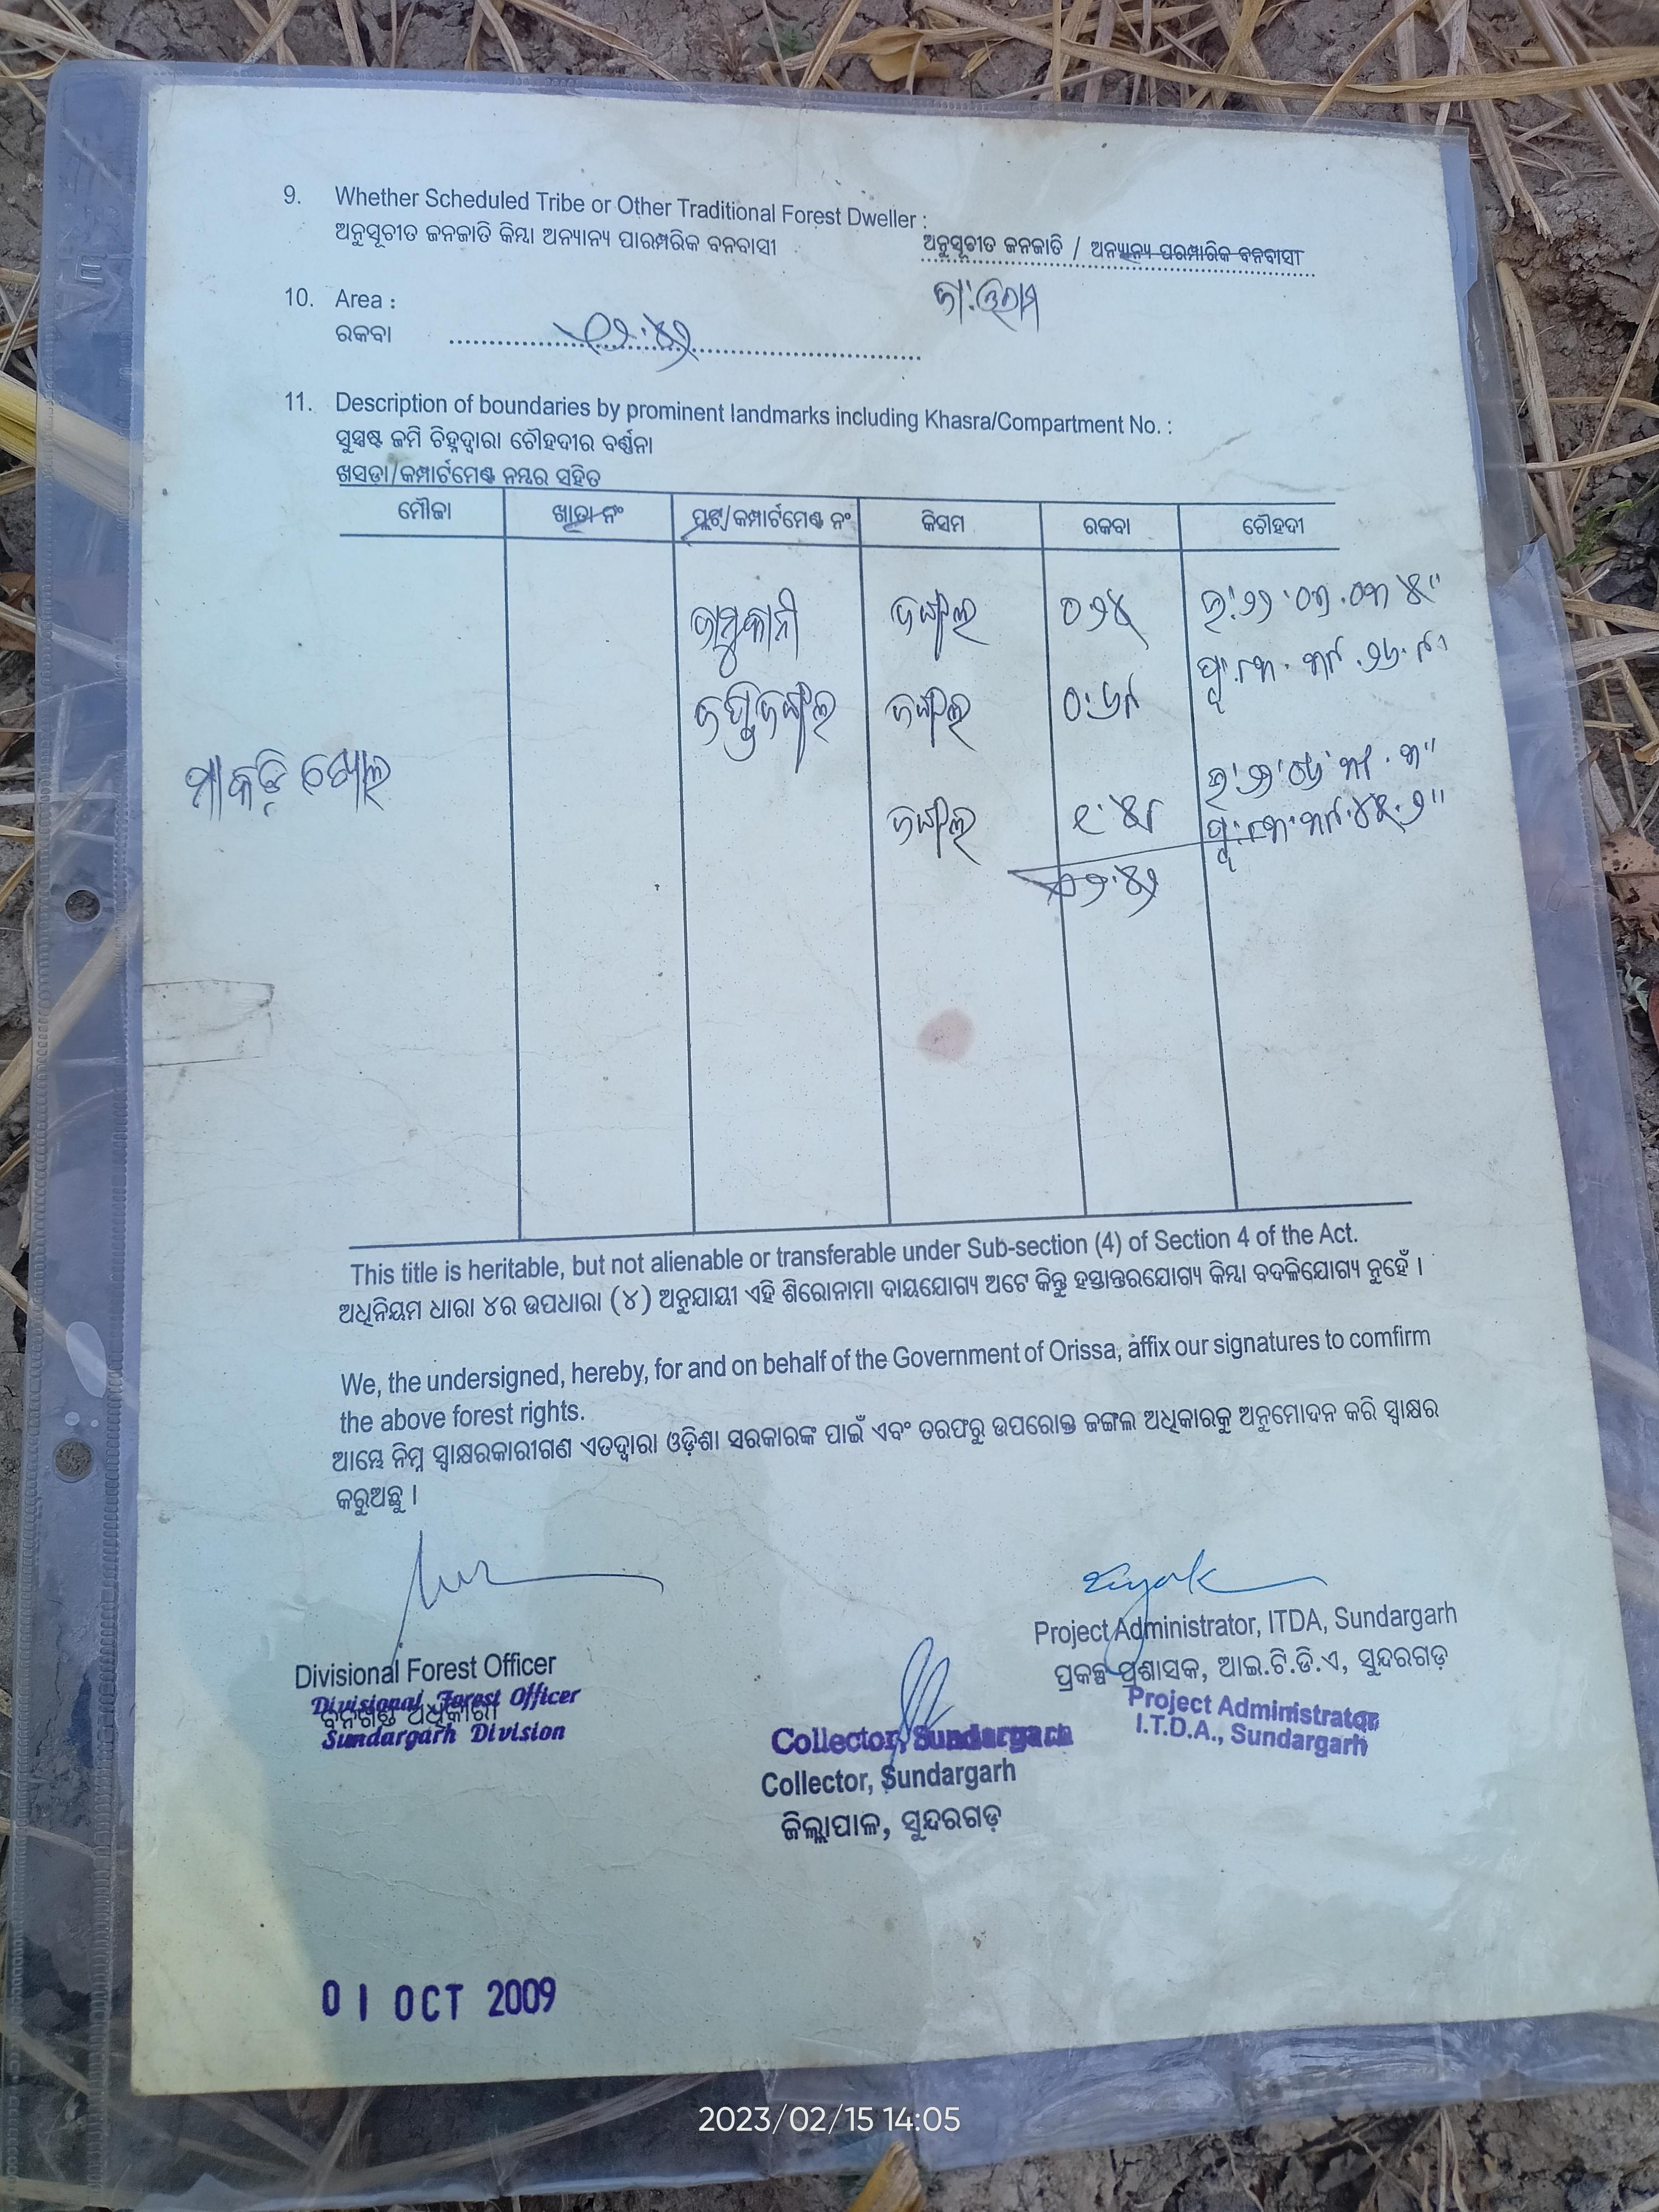 9. Whether Scheduled Tribe or Other Traditional Forest Dweller :
ଅନୁସୂଚୀତ ଜନଜାତି କିମ୍ବା ଅନ୍ୟାନ୍ୟ ପାରମ୍ପରିକ ବନବାସୀ
ଅନୁସୂଚୀତ ଜନଜାତି / ଅନ୍ୟାନ୍ୟ ପରମ୍ପାରିକ ବନବାସୀ
10. Area :
ରକବା
11. Description of boundaries by prominent landmarks including Khasra/Compartment No. :
ସୁସ୍ପଷ୍ଟ ଜମି ଚିହ୍ନଦ୍ୱାରା ଚୌହଦୀର ବର୍ଣ୍ଣନା
ଖସଡ଼ା/କମ୍ପାର୍ଟମେଣ୍ଟ ନମ୍ବର ସହିତ
ମୌଜା ଖାତା ନଂ ପ୍ଲଟ୍/କମ୍ପାର୍ଟମେଣ୍ଟ ନଂ କିସମ ରକବା ଚୌହଦୀ
ଜଙ୍ଗଲ ୦.୨୪
ଜଙ୍ଗଲ ୦.୬୯
ମାକଡ଼ି ଖୋଲ
ଜଙ୍ଗଲ
This title is heritable, but not alienable or transferable under Sub-section (4) of Section 4 of the Act.
ଅଧିନିୟମ ଧାରା ୪ର ଉପଧାରା (୪) ଅନୁଯାୟୀ ଏହି ଶିରୋନାମା ଦାୟଯୋଗ୍ୟ ଅଟେ କିନ୍ତୁ ହସ୍ତାନ୍ତରଯୋଗ୍ୟ କିମ୍ବା ବଦଳିଯୋଗ୍ୟ ନୁହେଁ ।
We, the undersigned, hereby, for and on behalf of the Government of Orissa, affix our signatures to comfirm
the above forest rights.
ଆମ୍ଭେ ନିମ୍ନ ସ୍ୱାକ୍ଷରକାରୀଗଣ ଏତଦ୍ୱାରା ଓଡ଼ିଶା ସରକାରଙ୍କ ପାଇଁ ଏବଂ ତରଫରୁ ଉପରୋକ୍ତ ଜଙ୍ଗଲ ଅଧିକାରକୁ ଅନୁମୋଦନ କରି ସ୍ୱାକ୍ଷର
କରୁଅଛୁ ।
Project Administrator, ITDA, Sundargarh
ପ୍ରକଳ୍ପ ପ୍ରଶାସକ, ଆଇ.ଟି.ଡି.ଏ, ସୁନ୍ଦରଗଡ଼
Project Administrator
I.T.D.A., Sundargarh
Divisional Forest Officer
Divisional Forest Officer
ବନଖଣ୍ଡ ଅଧିକାରୀ
Sundargarh Division
Collector, Sundargarh
Collector, Sundargarh
ଜିଲ୍ଲାପାଳ, ସୁନ୍ଦରଗଡ଼
01 OCT 2009
2023/02/15 14:05